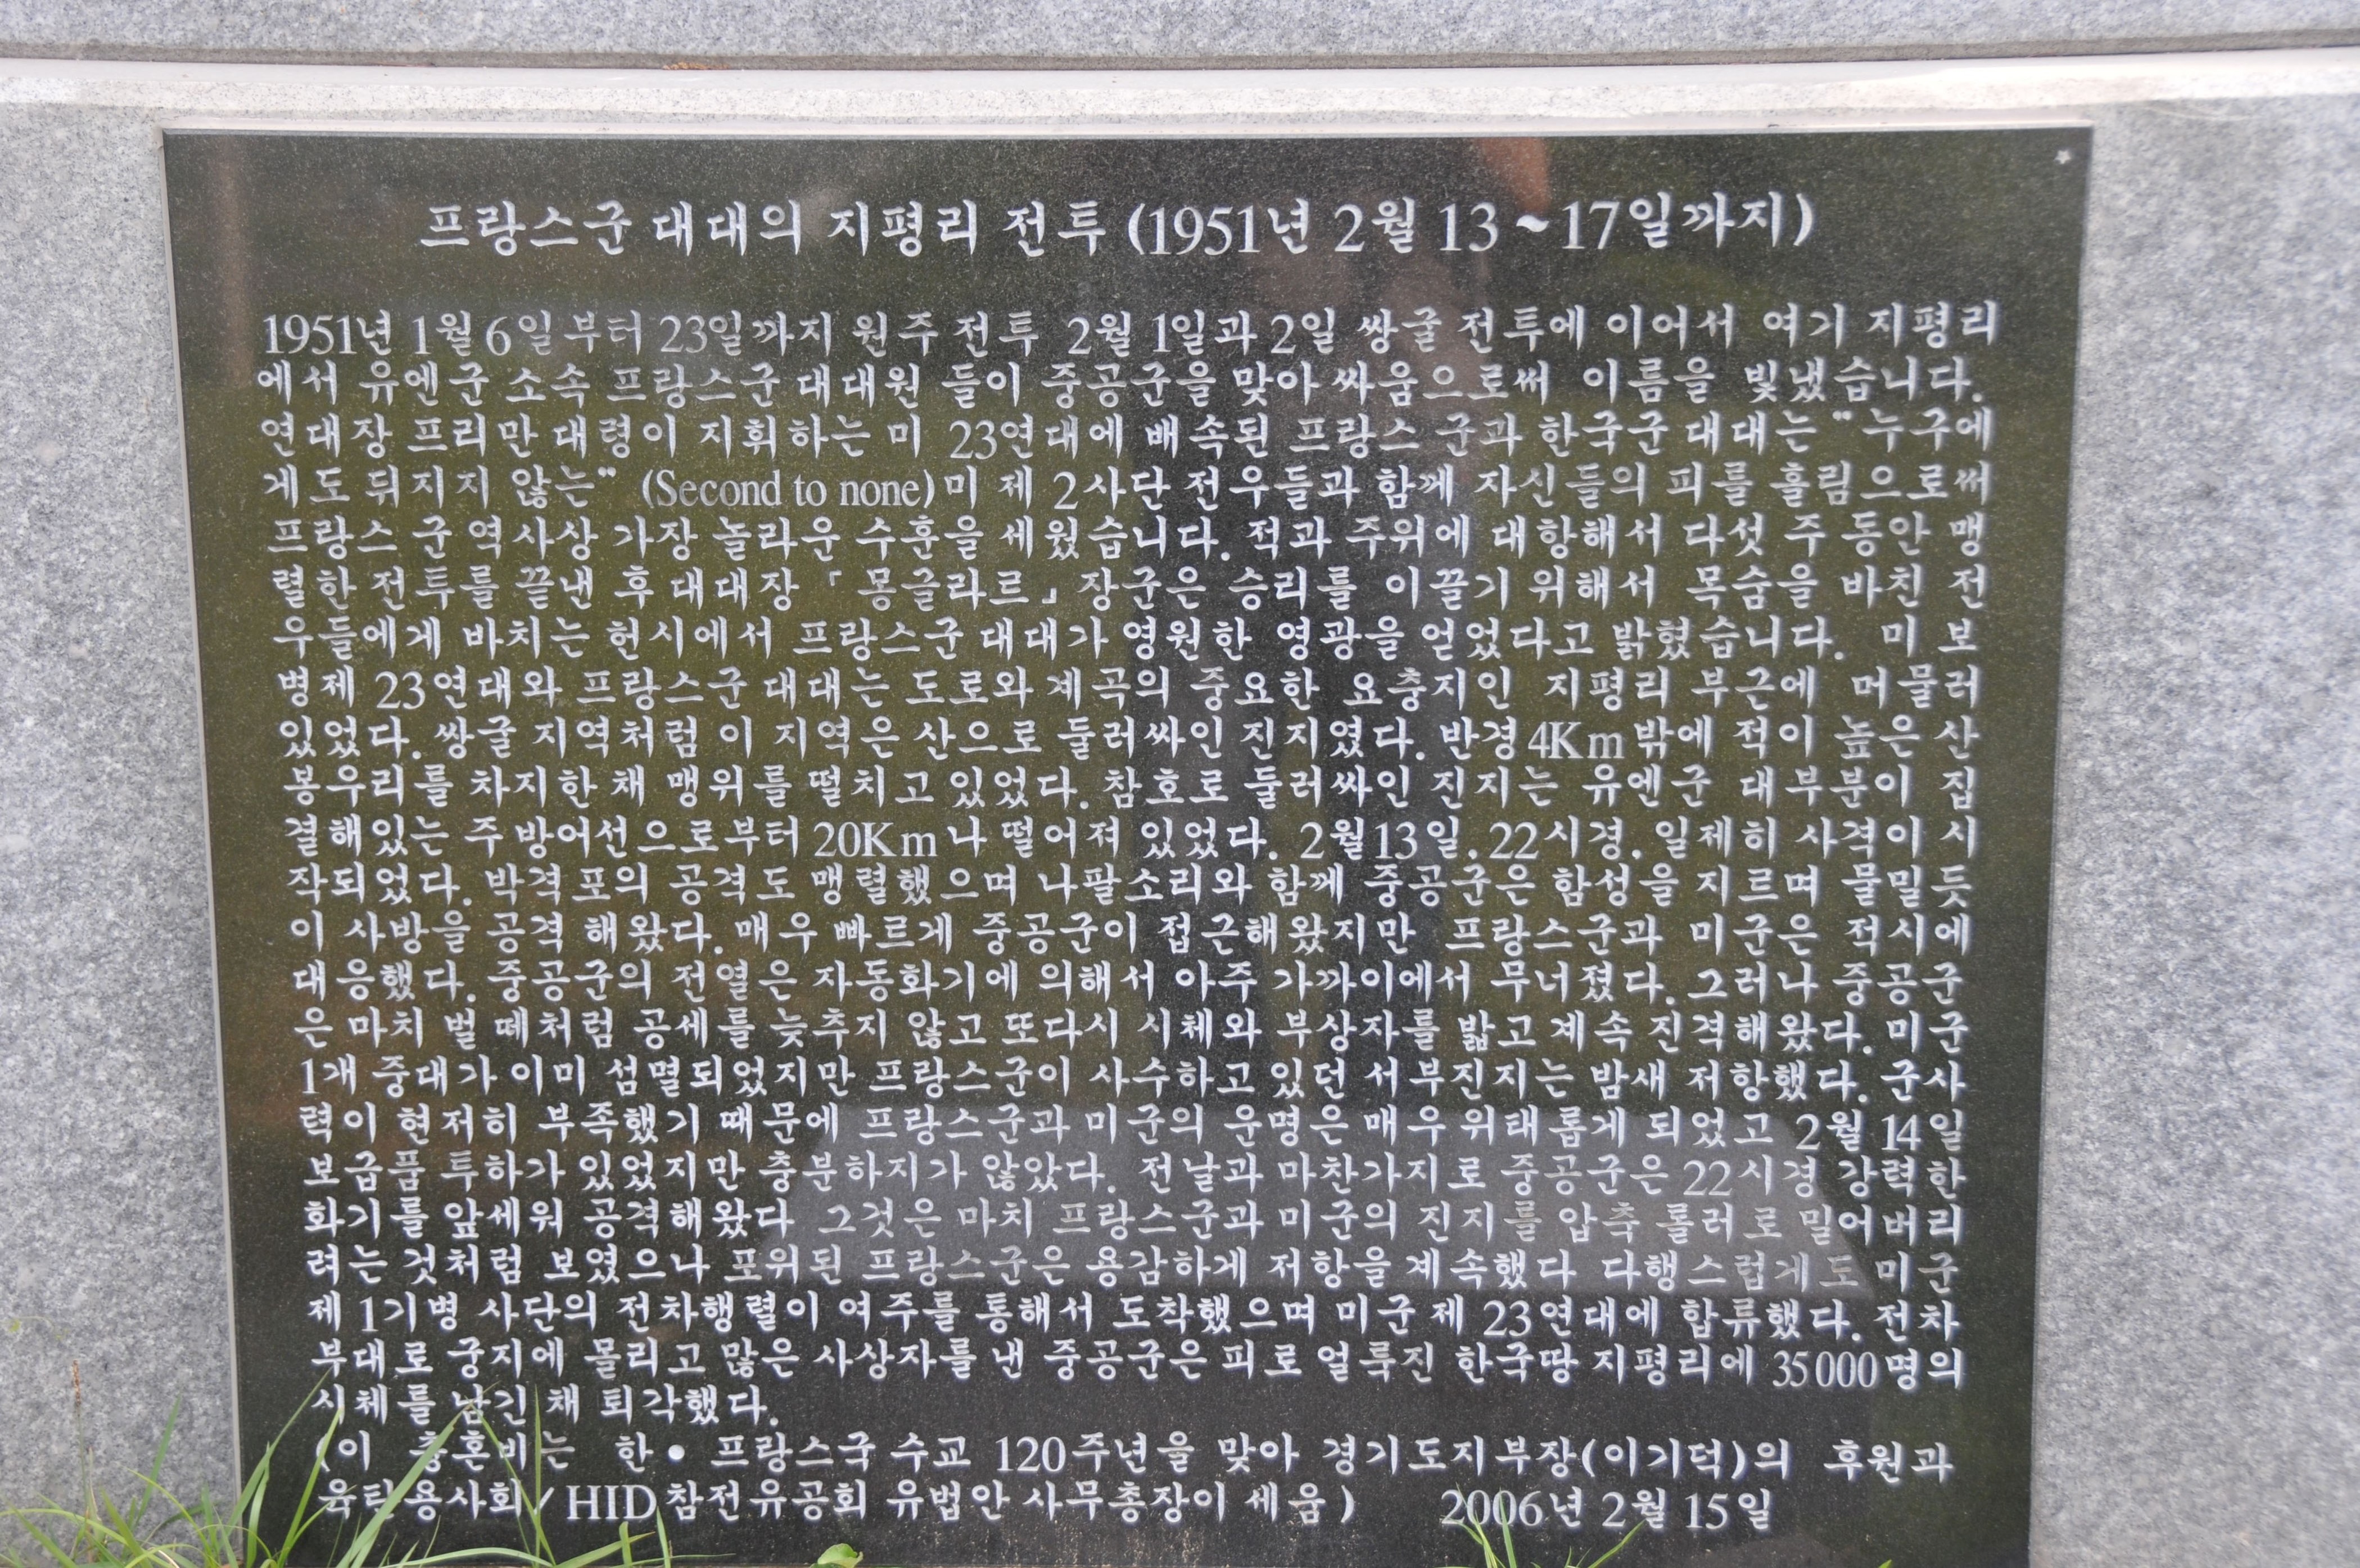 프랑스군 대대의 지평리 전투 (1951년 2월 13~17일까지)
1951년 1월 6일 부터 23일까지 원주 전투 2월 1일과 2일 쌍굴 전투에 이어서 여기 지평리
에서 유엔군 소속 프랑스군 대대원 들이 중공군을 맞아 싸움으로써 이름을 빛냈습니다.
연대장 프리만 대령이 지휘하는 미 23연대에 배속된 프랑스 군과 한국군 대대는 "누구에
게도 뒤지지 않는" (Second to none) 미 제 2사단 전우들과 함께 자신들의 피를 흘림으로써
프랑스 군 역사상 가장 놀라운 수훈을 세웠습니다. 적과 주위에 대항해서 다섯 주 동안 맹
렬한 전투를 끝낸 후 대대장 「몽글라르」 장군은 승리를 이끌기 위해서 목숨을 바친 전
우들에게 바치는 헌시에서 프랑스군 대대가 영원한 영광을 얻었다고 밝혔습니다. 미 보
병 제 23연대와 프랑스군 대대는 도로와 계곡의 중요한 요충지인 지평리 부근에 머물러
있었다. 쌍굴 지역처럼 이 지역은 산으로 둘러싸인 진지였다. 반경 4Km 밖에 적이 높은 산
봉우리를 차지한 채 맹위를 떨치고 있었다. 참호로 둘러싸인 진지는 유엔군 대부분이 집
결해있는 주 방어선으로부터 20Km나 떨어져 있었다. 2월 13일. 22시경. 일제히 사격이 시
작되었다. 박격포의 공격도 맹렬했으며 나팔소리와 함께 중공군은 함성을 지르며 물밀듯
이 사방을 공격 해왔다. 매우 빠르게 중공군이 접근해왔지만 프랑스군과 미군은 적시에
대응했다. 중공군의 전열은 자동화기에 의해서 아주 가까이에서 무너졌다. 그러나 중공군
은 마치 벌 떼처럼 공세를 늦추지 않고 또다시 시체와 부상자를 밟고 계속 진격해왔다. 미군
1개 중대가 이미 섬멸되었지만 프랑스군이 사수하고 있던 서부진지는 밤새 저항했다. 군사
력이 현저히 부족했기 때문에 프랑스군과 미군의 운명은 매우 위태롭게 되었고 2월 14일
보급품 투하가 있었지만 충분하지가 않았다. 전날과 마찬가지로 중공군은 22시경 강력한
화기를 앞세워 공격해왔다 그것은 마치 프랑스군과 미군의 진지를 압축 롤러로 밀어버리
려는 것처럼 보였으나 포위된 프랑스군은 용감하게 저항을 계속했다 다행스럽게도 미군
제 1기병 사단의 전차행렬이 여주를 통해서 도착했으며 미군 제 23연대에 합류했다. 전차
부대로 궁지에 몰리고 많은 사상자를 낸 중공군은 피로 얼룩진 한국땅 지평리에 35000명의
시체를 남긴 채 퇴각했다.
(이 충혼비는 한• 프랑스국 수교 120주년을 맞아 경기도지부장(이기덕)의 후원과
육탄용사회/HID참전유공회 유법안 사무총장이 세움) 2006년 2월 15일